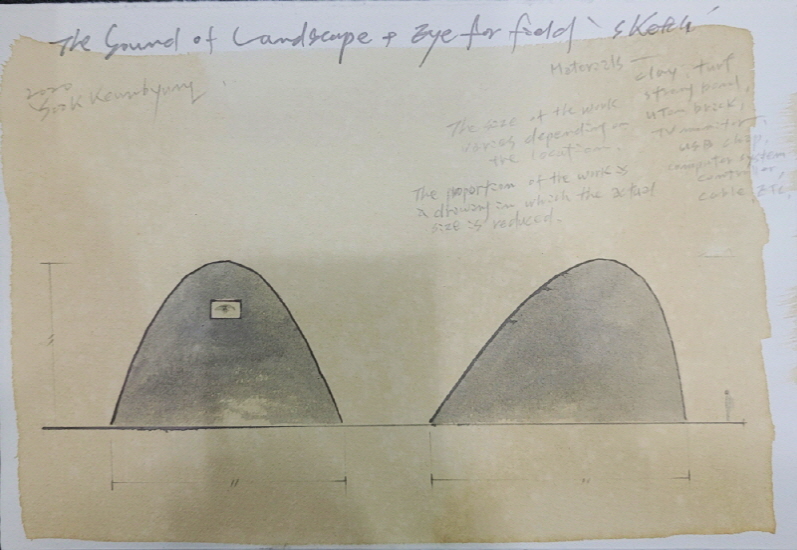 The Sound of Landscape + Eye for field 'sketch'
2020
Suk Keunbyung
Materials - Clay, turf
strong bond,
urban brick,
TV monitor,
USB chip,
computer system
controller,
cable, ETC,
The size of the work
varies depending on
the location.
The proportion of the work is
a drawing in which the actual
size is reduced.